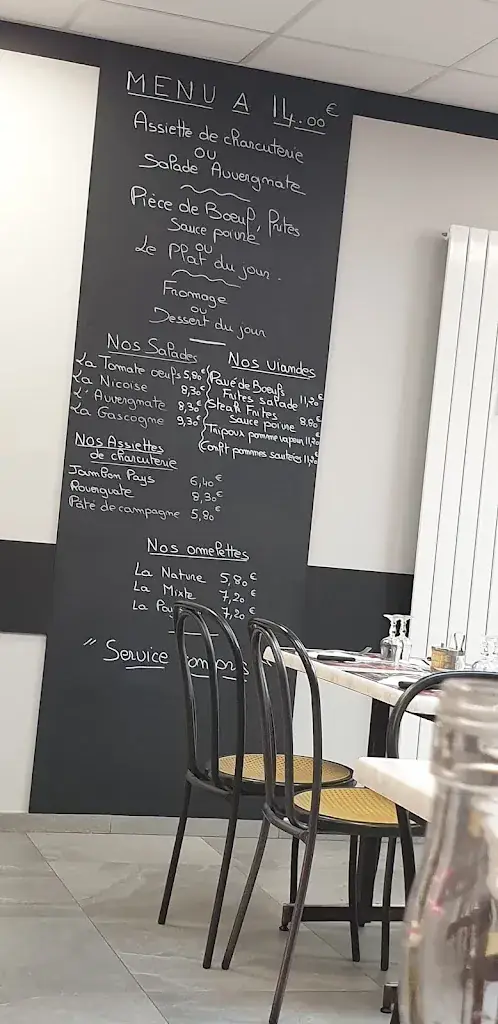 MENU A 14.00€
Assiette de charcuterie
ou
Salade Auvergnate
Pièce de Boeuf, Frites
Sauce poivre
ou
Le Plat du jour.
Fromage
ou
Dessert du jour
Nos Salades
La Tomate oeufs 5,80€
La Nicoise 8,30€
L'Auvergnate 8,30€
La Gascogne 9,30€
Nos viandes
Pavé de Boeufs
Frites salade 11,20€
Steak Frites
Sauce poivre 8,80€
Tripoux pomme vapeur 11,20€
Confit pommes sautées 11,20€
Nos Assiettes
de charcuterie
Jambon Pays 6,40€
Rouergate 8,30€
Pâté de campagne 5,80€
Nos omelettes
La Nature 5,80€
La Mixte 7,20€
La 7,20€
" Service